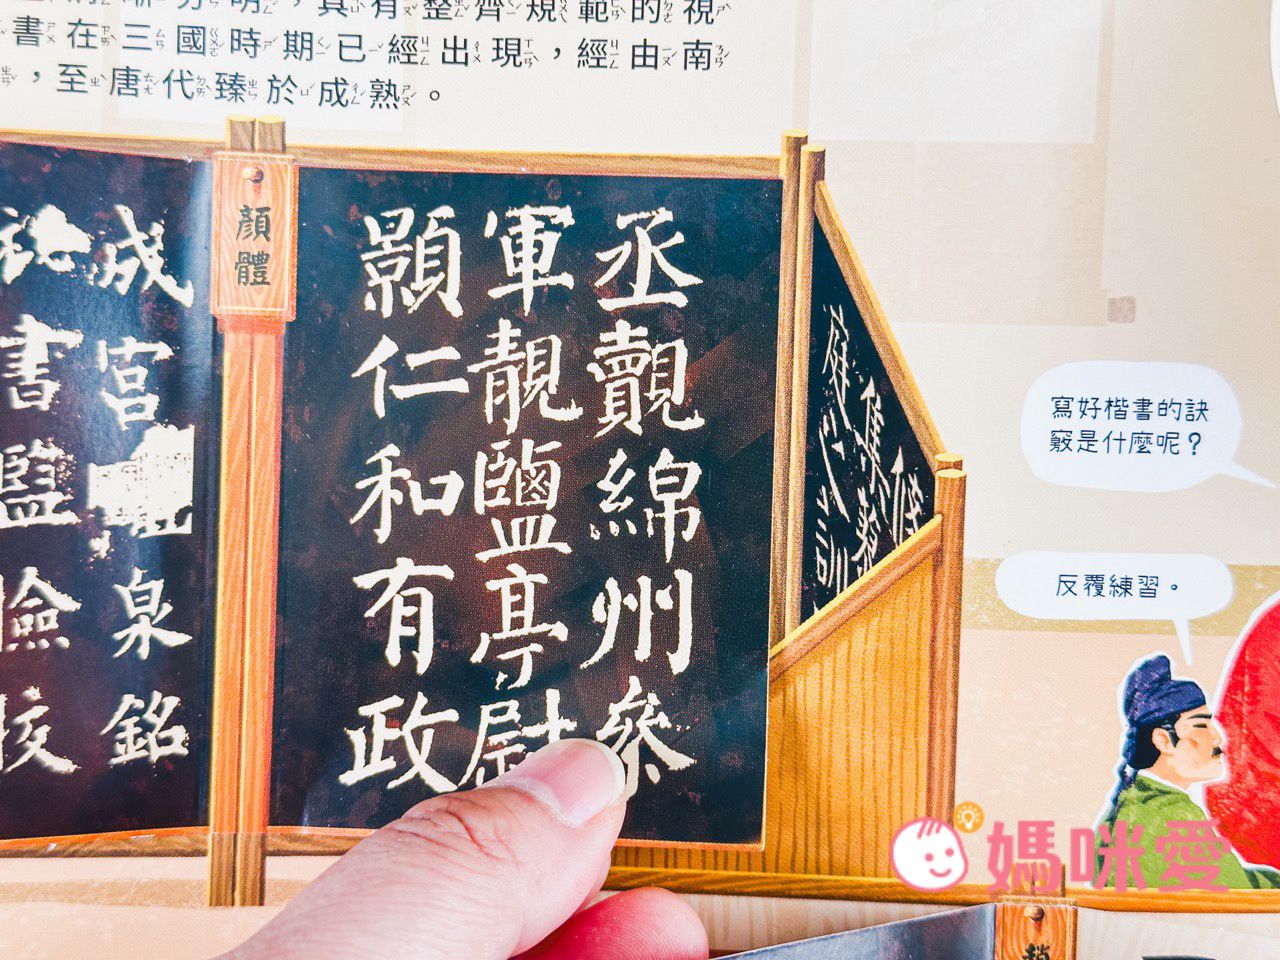 分明，具有整齊規範的視
書在三國時期已經出現，經由南
，至唐代臻於成熟。
成宮
泉銘
書
顏體
丞覿綿州參
軍靚鹽亭尉
顥仁和有政
庭之訓
寫好楷書的訣
竅是什麼呢？
反覆練習。
媽咪愛
趙